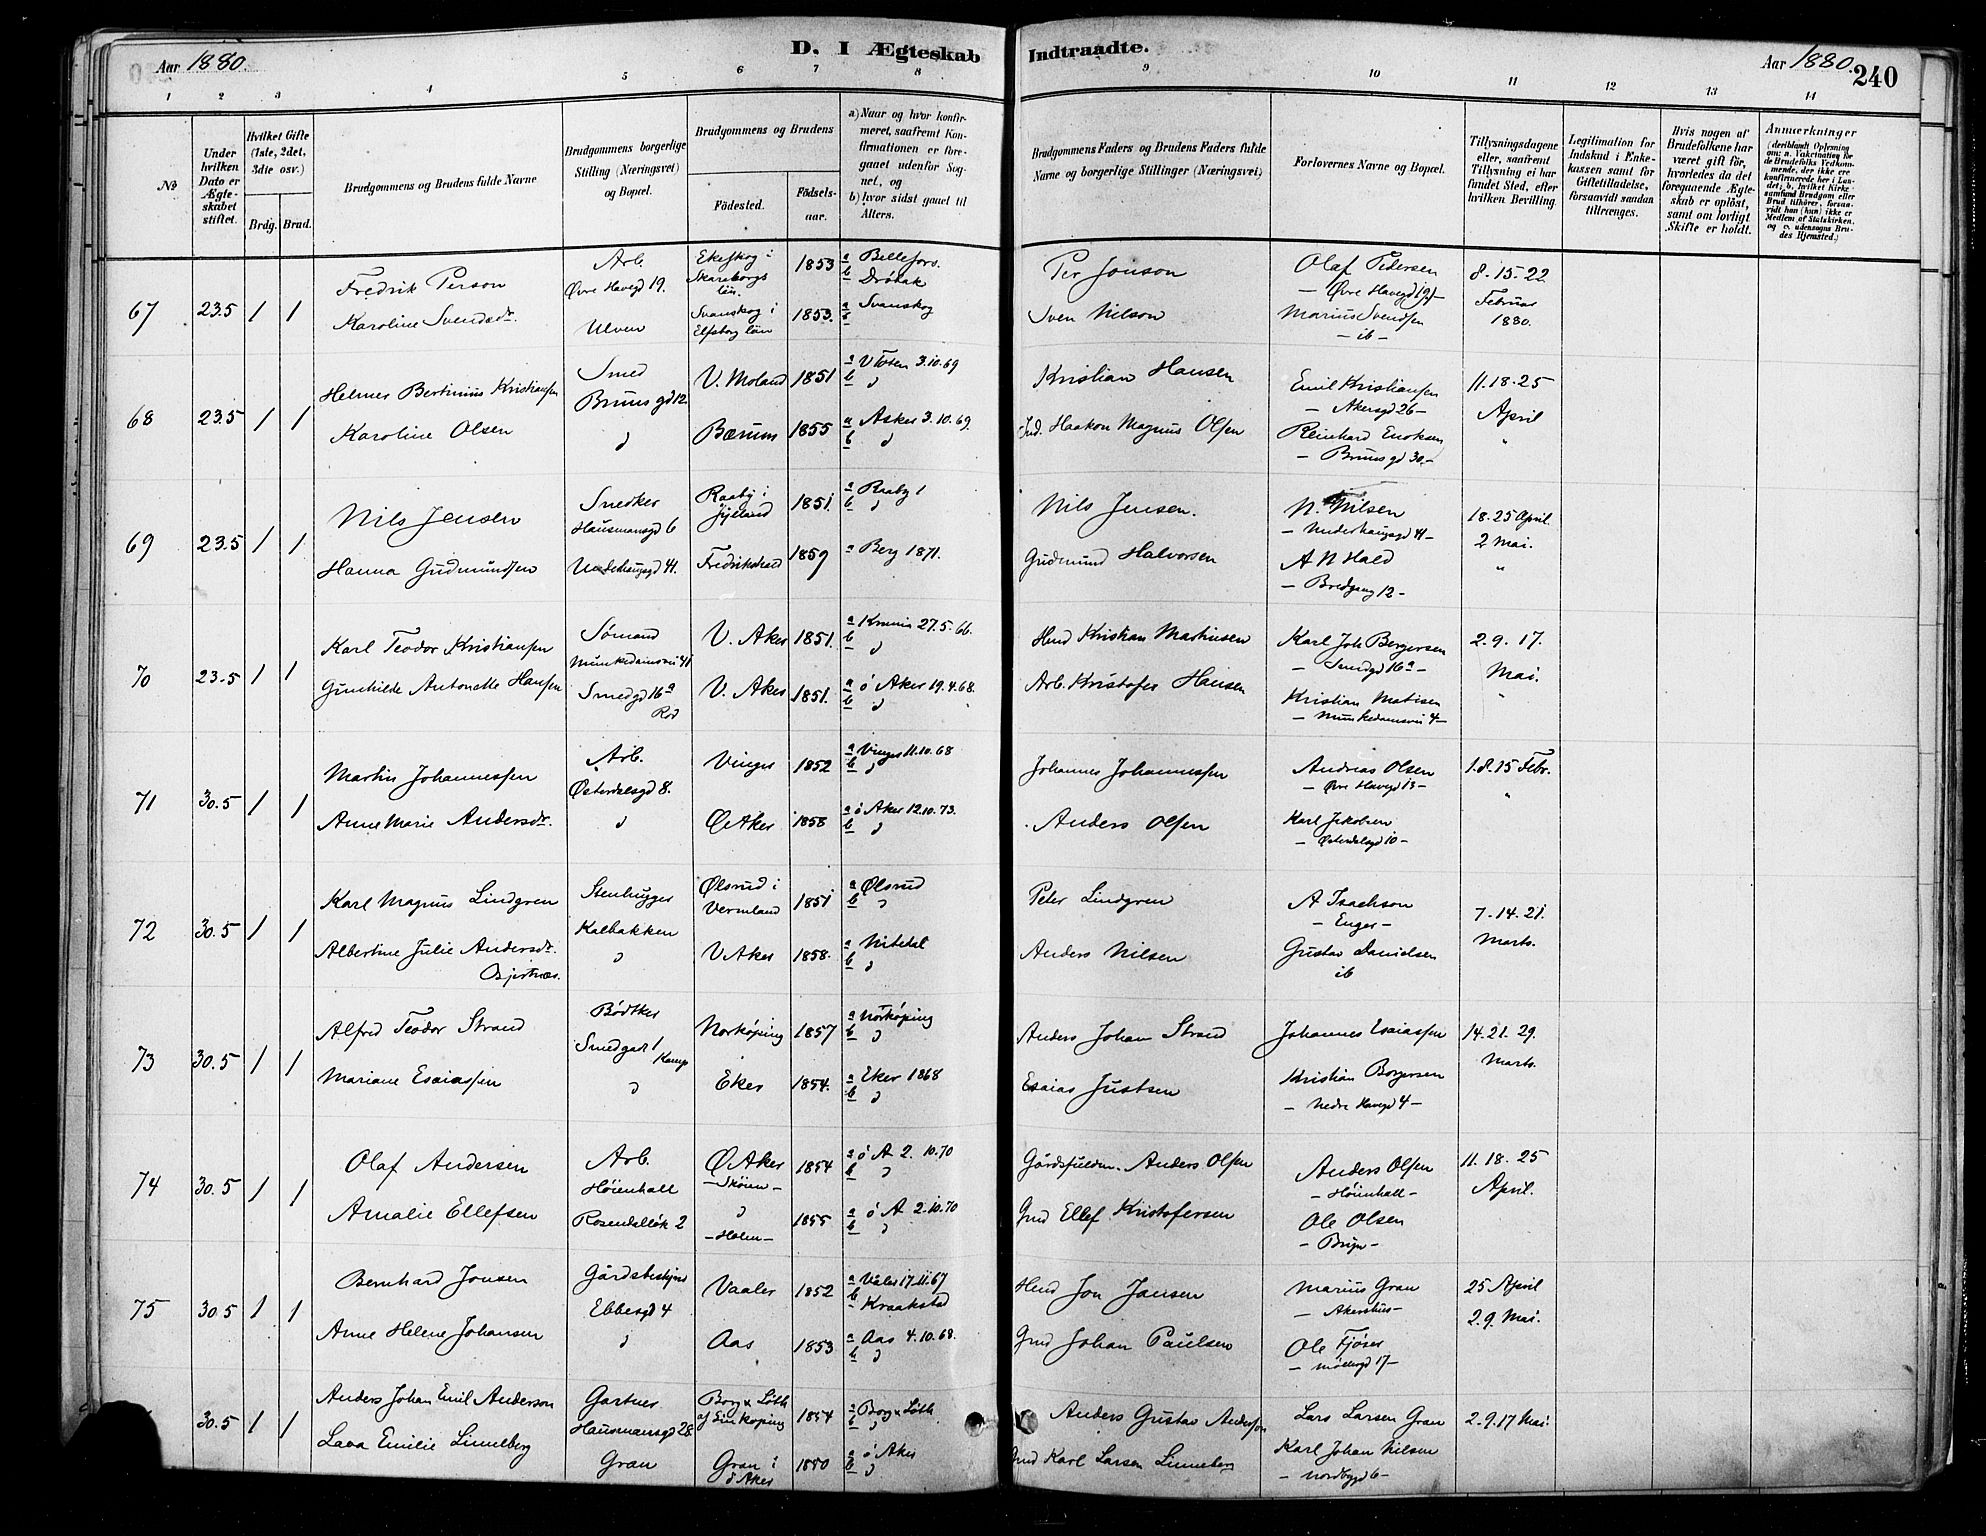 Aar 1880.
D. I Ægteskab Indtraadte.
Aar 1880.
240
1 2 3 4 5 6 7 8 9 10 11 12 13 14
№
Under hvilken Dato er Ægte-skabet stiftet.
Hvilket Gifte (1ste, 2det, 3die osv.)
Brdg. Brud.
Brudgommens og Brudens fulde Navne
Brudgommens borgerlige Stilling (Næringsvei) og Bopæl.
Brudgommens og Brudens
Födested.
Födsels-aar.
a) Naar og hvor konfir-meret, saafremt Kon-firmationen er fore-gaaet udenfor Sog-net, og
b) hvor sidst gaaet til Alters.
Brudgommens Faders og Brudens Faders fulde Navne og borgerlige Stillinger (Næringsvei)
Forlovernes Navne og Bopæl.
Tillysningsdagene eller, saafremt Tillysning ei har fundet Sted, efter hvilken Bevilling.
Legitimation for Indskud i Enke-kassen samt for Giftetilladelse, forsaavidt saadan tiltrænges.
Hvis nogen af Brudefolkene har været gift för, hvorledes da det foregaaende Ægte-skab er oplöst, samt om lovligt Skifte er holdt.
Anmærkninger
(deriblandt Oplysning om: a. Vakcination for de Brudefolks Vedkom-mende, der ikke ere konfirmerede her i Lan-det; b. hvilket Kirke-samfund Brudgom eller Brud tilhörer, forsaa-vidt han (hun) ikke er Medlem af Statskirken, og c. udensogns Bru-des Hjemsted.)
67 23.5 1 1
Fredrik Person Arb. Øvre Havegd 19. Ekeskog i Skaraborgs län. 1853 a Bellefors. b Dröbak Per Jonson Olaf Pedersen — Øvre Havegd 19 — 8. 15. 22 Februar 1880.
Karoline Svendsdr. Ulven Svanskog i Elfsborg län 1853. a Svanskog b Sven Nilson Marius Svendsen — ib —
68 23.5 1 1
Helmer Bertinius Kristiansen Smed Bruns gd 12. V. Moland 1851 a V Toten 3.10.69 b Kristian Hansen Emil Kristiansen — Akersgd 26 — 11. 18. 25 April
Karoline Olsen Bærum 1855 a Asker 3.10.69. b Ind. Haakon Magnus Olsen Reinhard Enoksen — Bruns gd 30. —
69 23.5 1 1
Nils Jensen Snedker Hausmansgd 6 Raaby i Jylland 1851. a Raaby b Nils Jensen. N. Nilsen 18. 25 April 2 Mai.
Hanna Gudmundsen Fredrikstad 1859 a Berg 1871. Gudmund Halvorsen A N Hald — Bredgang 12 —
70 23.5 1 1
Karl Teodor Kristiansen Sömand Munkedamsvei 41 V. Aker 1851. a 27.5.66. b Hmd Kristian Martinsen Karl Joh Bergersen — Smedgd 16a — 2. 9. 17. Mai.
Gunhilde Antonette Hansen Smedgd 16a V. Aker 1851. a ö Aker 19.4.68. b Arb. Kristofer Hansen Kristian Matisen — Munkedamsvei 4 —
71 30.5 1 1
Martin Johannessen Arb. Østerdalsgd 8. Vinger 1852 a Vinger 11.10.68 b Johannes Johannessen Andreas Olsen — Øvre Havegd 13 — 1. 8. 15 Febr.
Anne Marie Andersdr. Ø Aker 1858 a ö Aker 12.10.73. b Anders Olsen Karl Jakobsen — Østerdalsgd 10 —
72 30.5 1 1
Karl Magnus Lindgren Stenhugger Kalbakken Ølsrud i Vermland 1851 a Ølsrud b Peter Lindgren A Isachson — Enger — 7. 14. 21. Marts.
Albertine Julie Andersdr. Bjertnæs. V Aker 1858. a Nitedal b Anders Nilsen Gustav Danielsen ib
73 30.5 1 1
Alfred Teodor Strand Bödtker Smedgad 1 Kamp Norköping 1857 a Norköping b Anders Johan Strand Johannes Esaiassen 14. 21. 29. Marts.
Mariane Esaiassen Eker 1854. a Eker 1868 b Esaias Justsen Kristian Borgersen — Nedre Havegd 4 —
74 30.5 1 1
Olaf Andersen Arb. Höienhall Ø Aker — Sköien — 1854 a ö A 2. 10.70 b Anders Olsen Anders Olsen — Höienhall — 11. 18. 25 April.
Amalie Ellefsen Rosendallök 2 — Holm — 1855 a ö A 2.10.70 b Gmd Ellef Kristofersen Ole Olsen — Bryn —
75 30.5 1 1
Bernhard Jonsen Ebbesgd 4 Vaaler 1852 a Våler 17.11.67 b Kraakstad Hmd Jon Jansen Marius Gran — Akershus — 25 April 2. 9. Mai.
Anne Helene Johansen Aas 1853 a Aas 4.10.68. b Gmd Johan Paulsen Ole Fjöser
30.5 1 1
Anders Johan Emil Anderson Gartner Hausmansgd 28. Borg & Löth af Linköping 1854 a Borg & Löth b Anders Gustav Anderson Lars Larsen Gran 2. 9. 17 Mai.
Lava Emilie Linneberg Gran Gran i ö Aker 1850 a ö Aker b Gmd Karl Larsen Linneberg Karl Johan Nilsen — Nordbygd 6 —